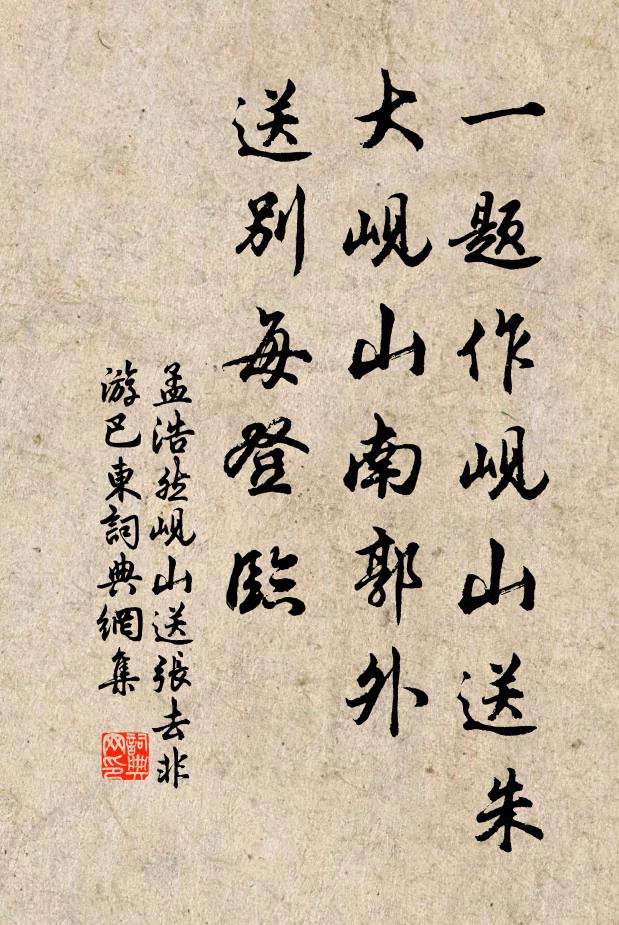 一题作岘山送朱
大岘山南郭外
送别每登临
孟浩然岘山送張去非
游巴東詞典網集
詞典网印